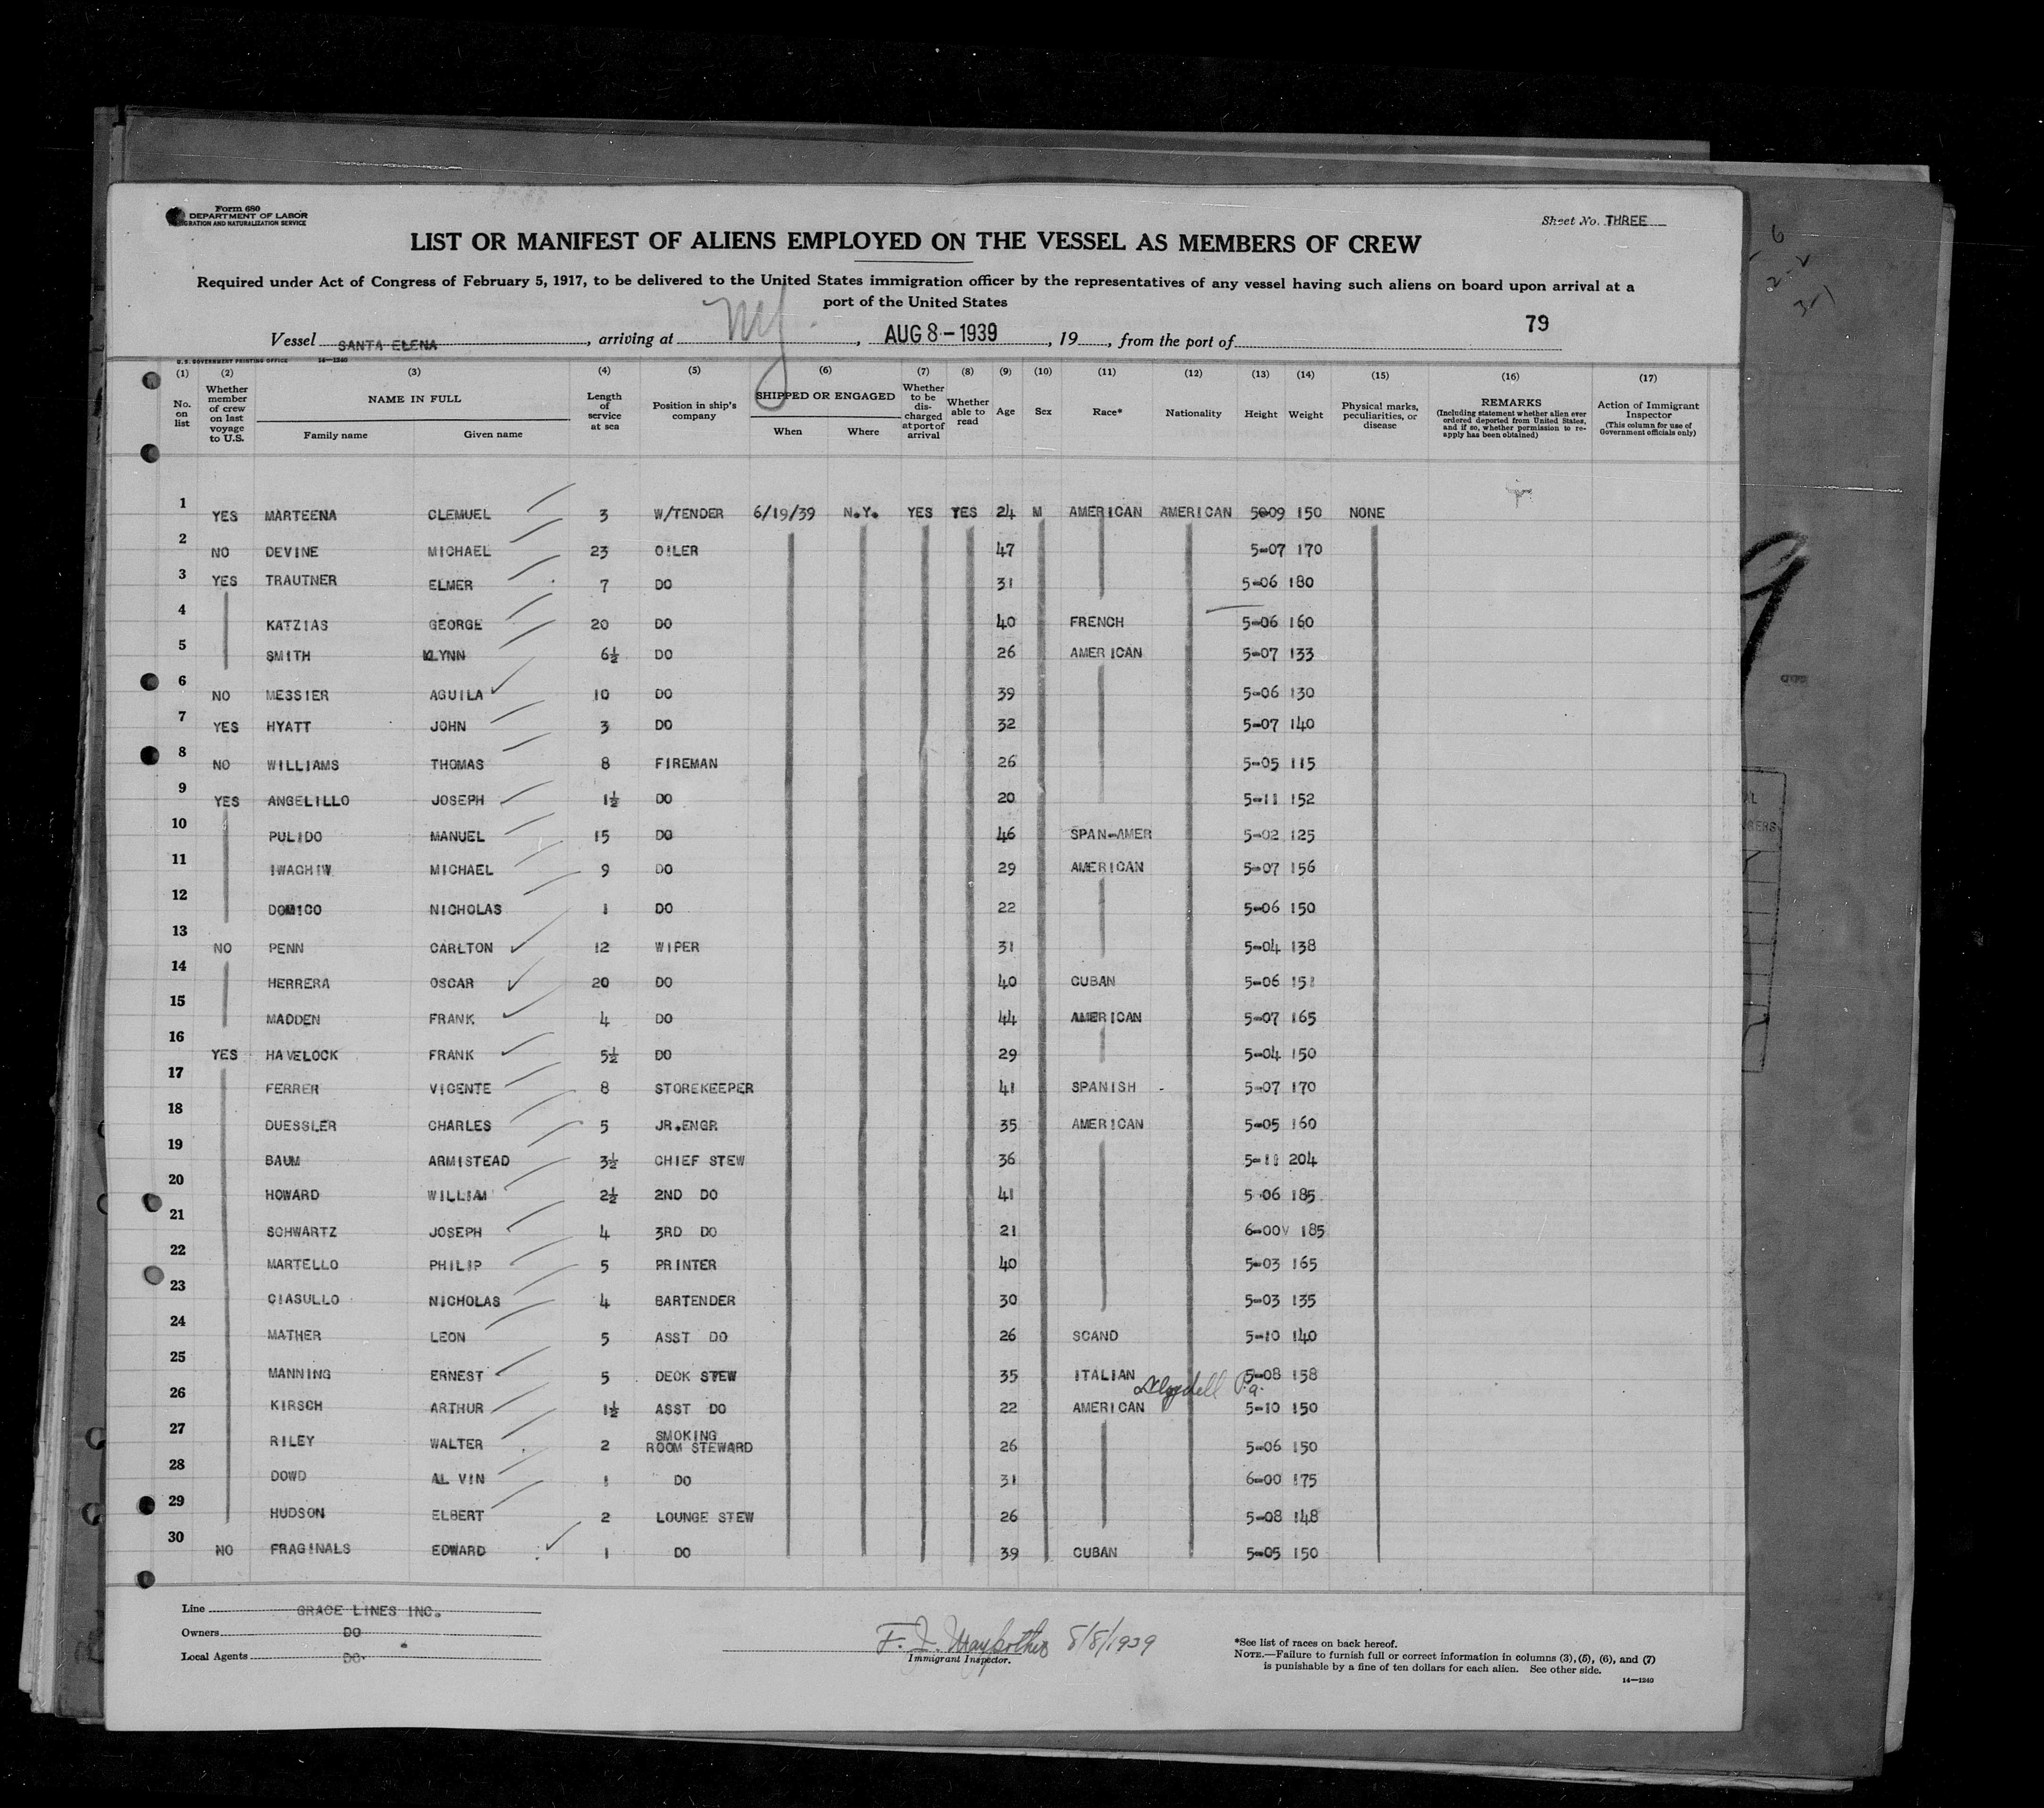 Form 680
DEPARTMENT OF LABOR
IGRATION AND NATURALIZATION SERVICE
Sheet No. THREE
LIST OR MANIFEST OF ALIENS EMPLOYED ON THE VESSEL AS MEMBERS OF CREW
Required under Act of Congress of February 5, 1917, to be delivered to the United States immigration officer by the representatives of any vessel having such aliens on board upon arrival at a
port of the United States
79
Vessel SANTA ELENA, arriving at NY., AUG 8-1939, 19, from the port of
U.S. GOVERNMENT PRINTING OFFICE 14-1240
(1) (2) (3) (4) (5) (6) (7) (8) (9) (10) (11) (12) (13) (14) (15) (16) (17)
No. on list
Whether member of crew on last voyage to U.S.
NAME IN FULL
Family name Given name
Length of service at sea
Position in ship's company
SHIPPED OR ENGAGED
When Where
Whether to be discharged at port of arrival
Whether able to read
Age
Sex
Race*
Nationality
Height
Weight
Physical marks, peculiarities, or disease
REMARKS
(Including statement whether alien ever ordered deported from United States, and if so, whether permission to re-apply has been obtained)
Action of Immigrant Inspector
(This column for use of Government officials only)
1 YES MARTEENA CLEMUEL 3 W/TENDER 6/19/39 N.Y. YES YES 24 M AMERICAN AMERICAN 5-09 150 NONE
2 NO DEVINE MICHAEL 23 OILER 47 5-07 170
3 YES TRAUTNER ELMER 7 DO 31 5-06 180
4 KATZIAS GEORGE 20 DO 40 FRENCH 5-06 160
5 SMITH LYNN 6½ DO 26 AMERICAN 5-07 133
6 NO MESSIER AGUILA 10 DO 39 5-06 130
7 YES HYATT JOHN 3 DO 32 5-07 140
8 NO WILLIAMS THOMAS 8 FIREMAN 26 5-05 115
9 YES ANGELILLO JOSEPH 1½ DO 20 5-11 152
10 PULIDO MANUEL 15 DO 46 SPAN-AMER 5-02 125
11 IWACHIW MICHAEL 9 DO 29 AMERICAN 5-07 156
12 DOMICO NICHOLAS 1 DO 22 5-06 150
13 NO PENN CARLTON 12 WIPER 31 5-04 138
14 HERRERA OSCAR 20 DO 40 CUBAN 5-06 151
15 MADDEN FRANK 4 DO 44 AMERICAN 5-07 165
16 YES HAVELOCK FRANK 5½ DO 29 5-04 150
17 FERRER VICENTE 8 STOREKEEPER 41 SPANISH - 5-07 170
18 DUESSLER CHARLES 5 JR.ENGR 35 AMERICAN 5-05 160
19 BAUM ARMISTEAD 3½ CHIEF STEW 36 5-11 204
20 HOWARD WILLIAM 2½ 2ND DO 41 5 06 185
21 SCHWARTZ JOSEPH 4 3RD DO 21 6-00 185
22 MARTELLO PHILIP 5 PRINTER 40 5-03 165
23 CIASULLO NICHOLAS 4 BARTENDER 30 5-03 135
24 MATHER LEON 5 ASST DO 26 SCAND 5-10 140
25 MANNING ERNEST 5 DECK STEW 35 ITALIAN 5-08 158
Pa.
26 KIRSCH ARTHUR 1½ ASST DO 22 AMERICAN 5-10 150
27 RILEY WALTER 2 SMOKING ROOM STEWARD 26 5-06 150
28 DOWD AL VIN 1 DO 31 6-00 175
29 HUDSON ELBERT 2 LOUNGE STEW 26 5-08 148
30 NO FRAGINALS EDWARD 1 DO 39 CUBAN 5-05 150
Line GRACE LINES INC.
Owners DO
Local Agents DO.
F. J. 8/8/1939
Immigrant Inspector.
*See list of races on back hereof.
NOTE.—Failure to furnish full or correct information in columns (3), (5), (6), and (7)
is punishable by a fine of ten dollars for each alien. See other side.
14-1240